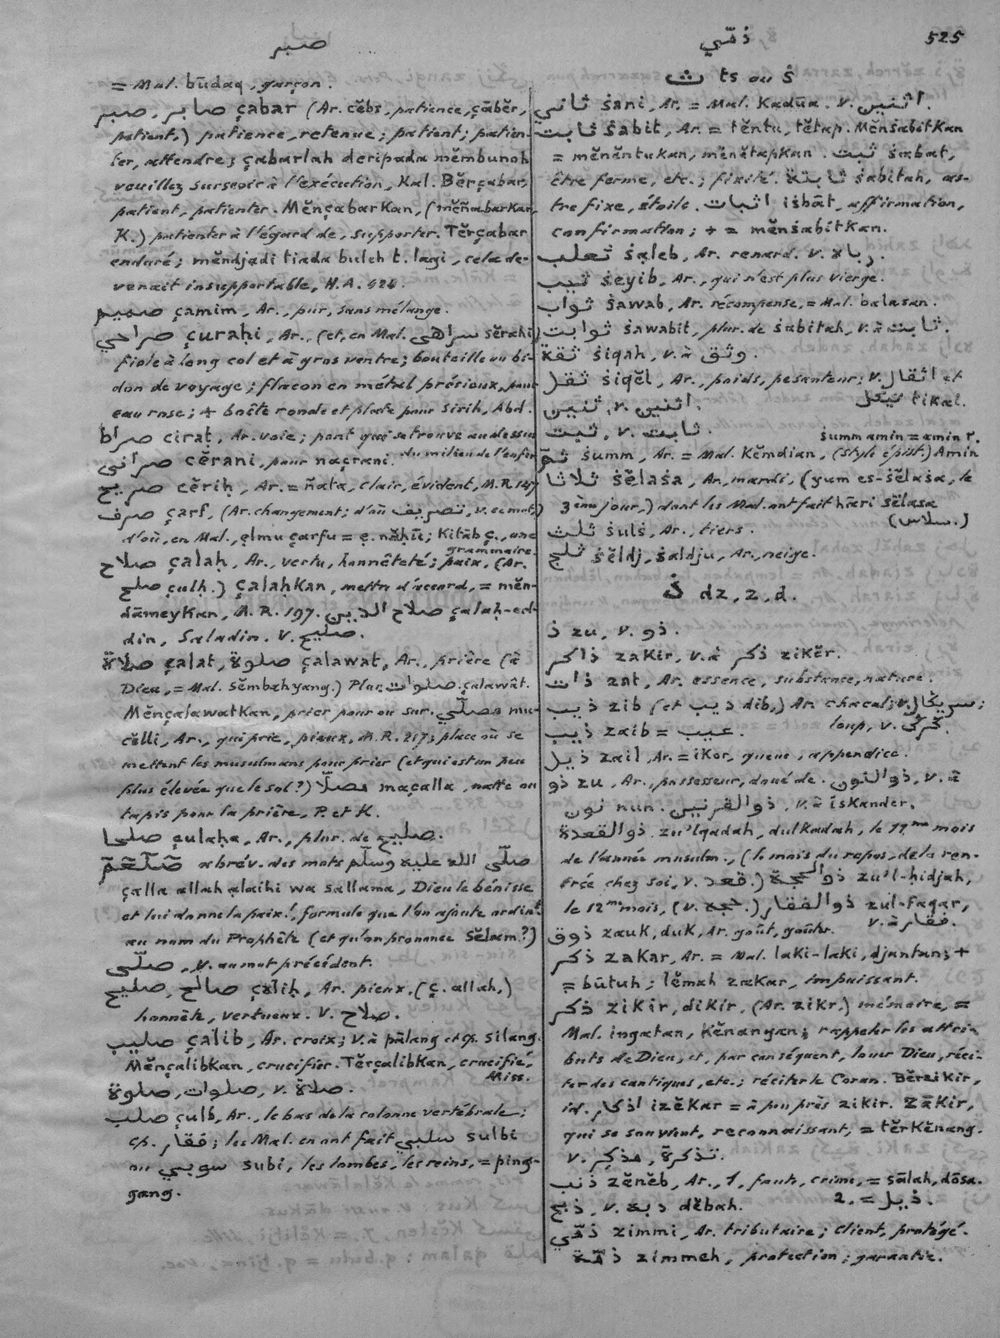 صبر
ذمّي
525
= Mal. būdaq, garçon.
صبر, صابر çabar (Ar. çĕbr, patience, çābĕr,
patient,) patience, retenue; patient; patien-
ter, attendre; çabarlah deripada mĕmbunoh
veuillez surseoir à l'exécution, Kal. Bĕrçabar,
patient, patienter. Mĕnçabarkan, (mĕñabarkan,
K.) patienter à l'égard de, supporter. Tĕrçabar
enduré; mĕndjadi tiada buleh t. lagi, cela de-
venait insupportable, H.A. 426.
صميم çamim, Ar., pur, sans mélange.
صراحي çuraḥi, Ar., (et, en Mal. سراهى sĕrahi)
fiole à long col et à gros ventre; bouteille ou bi-
don de voyage; flacon en métal précieux, pour
eau rose; + boîte ronde et plate pour sirih, Abd.
صراط ciraṭ, Ar. voie; pont qui se trouve au dessus
du milieu de l'enfer
صرانى cĕrani, pour naçrani.
صريح cĕriḥ, Ar. = ñata, clair, évident, M.R. 147
صرف çarf, (Ar. changement; d'où تصريف, v. ce mot)
d'où, en Mal., ẹlmu çarfu = ẹ. nāhū; Kitāb ç., une
grammaire.
صلاح çalaḥ, Ar., vertu, honnêteté; paix, (Ar.
صلح çulḥ.) Çalaḥkan, mettre d'accord, = mĕn-
dāmeykan, M.R. 197. صلاح الدين çalaḥ-ed-
din, Saladin. V. صليح.
صلاة çalat, صلوة çalawat, Ar., prière (à
Dieu, = Mal. sĕmbahyang.) Plur. صلوات çalawât.
Mĕnçalawatkan, prier pour ou sur. مصلّي mu-
cĕlli, Ar., qui prie, pieux, M.R. 217; place où se
mettent les musulmans pour prier (et qui est un peu
plus élevée que le sol?) مصلّا maçalla, natte ou
tapis pour la prière, P. et K.
صلحا çulaḥa, Ar., plur. de صليح.
صلعم abrév. des mots صلّى الله عليه وسلّم
çalla allah ạlaihi wa sallama, Dieu le bénisse
et lui donne la paix!, formule que l'on ajoute ordin.t
au nom du Prophète (et qu'on prononce sĕlam?)
صلّى, V. au mot précédent.
صليح, صالح çāliḥ, Ar. pieux, (ç. allah,)
honnête, vertueux. V. صلاح.
صليب çalib, Ar. croix; v. à pālang et cp. silang.
Mĕnçalibkan, crucifier. Tĕrçalibkan, crucifié,
Miss.
صلوة, صلوات, v. صلاة.
صلب çulb, Ar., le bas de la colonne vertébrale;
cp. فقار; les Mal. en ont fait سلبي sulbi
ou سوبي subi, les lombes, les reins, = ping-
gang.
ث ts ou ṡ
ثاني ṡani, Ar. = Mal. Kadūa. V. اثنين.
ثابت ṡabit, Ar. = tĕntu, tĕtap. Mĕnṡabitkan
= mĕnĕntukan, mĕnĕtapkan. ثبت ṡabat,
être ferme, etc.; fixité. ثابتة ṡabitah, as-
tre fixe, étoile. اثبات iṡbāt, affirmation,
confirmation; + = mĕnṡabitkan.
ثعلب ṡạleb, Ar. renard. V. رباه.
ثيب ṡeyib, Ar., qui n'est plus vierge.
ثواب ṡawab, Ar. récompense, = Mal. balasan.
ثوابت ṡawabit, plur. de ṡabitah, v. à ثابت.
ثقة ṡiqah, v. à وثق.
ثقل ṡiqĕl, Ar., poids, pesanteur; V. اثقال et
تيكل tikal.
ثنين, v. اثنين.
ثبت, v. ثابت.
ṡumm amin = amin r.
ثمّ ṡumm, Ar. = Mal. Kĕmdian, (style épist.) Amin
ثلاثا ṡĕlaṡa, Ar., mardi, (yum es-ṡĕlaṡa, le
3ème jour,) dont les Mal. ont fait hāri sĕlasa
(سلاس.)
ثلث ṡulṡ, Ar., tiers.
ثلج ṡĕldj, ṡaldju, Ar., neige.
ذ dz, z, d.
ذ zu, v. ذو.
ذاكر zakir, v. à ذكر zikĕr.
ذات zat, Ar. essence, substance, nature.
ذيب zib (et ديب dib,) Ar. chacal; v. سريڬال;
loup, v.
ذيب zaib = عيب.
ذيل zail, Ar. = ikor, queue, appendice.
ذو zu, Ar., possesseur, doué de. ذوالنون, v. à
نون nun. ذوالقرنين, v. à iskander.
ذوالقعدة zu'lqadah, dulkadah, le 11me mois
de l'année musulm., (le mois du repos, de la ren-
trée chez soi, v. قعد.) ذوالحجة zu'l-ḥidjah,
le 12me mois, (v. حجة.) ذوالفقار zul-faqar,
v. à فقار.
ذوق zauk, duk, Ar. goût, goûter.
ذكر zakar, Ar. = Mal. laki-laki, djantan; +
= būtuh; lĕmah zakar, impuissant.
ذكر zikir, dikir, (Ar. zikr,) mémoire, =
Mal. ingatan, Kĕnangan; rappeler les attri-
buts de Dieu, et, par conséquent, louer Dieu, réci-
ter des cantiques, etc.; réciter le Coran. Bĕrzikir,
id. اذكار izĕkar = à peu près zikir. Zākir,
qui se souvient, reconnaissant, = tĕrkĕnang.
V. تذكرة, مذكر.
ذنب zĕnĕb, Ar., 1, faute, crime, = sālah, dōsa.
2. = ذيل.
ذبح, v. دبه dĕbah.
ذمّي zimmi, Ar. tributaire; client, protégé.
ذمّة zimmeh, protection; garantie.